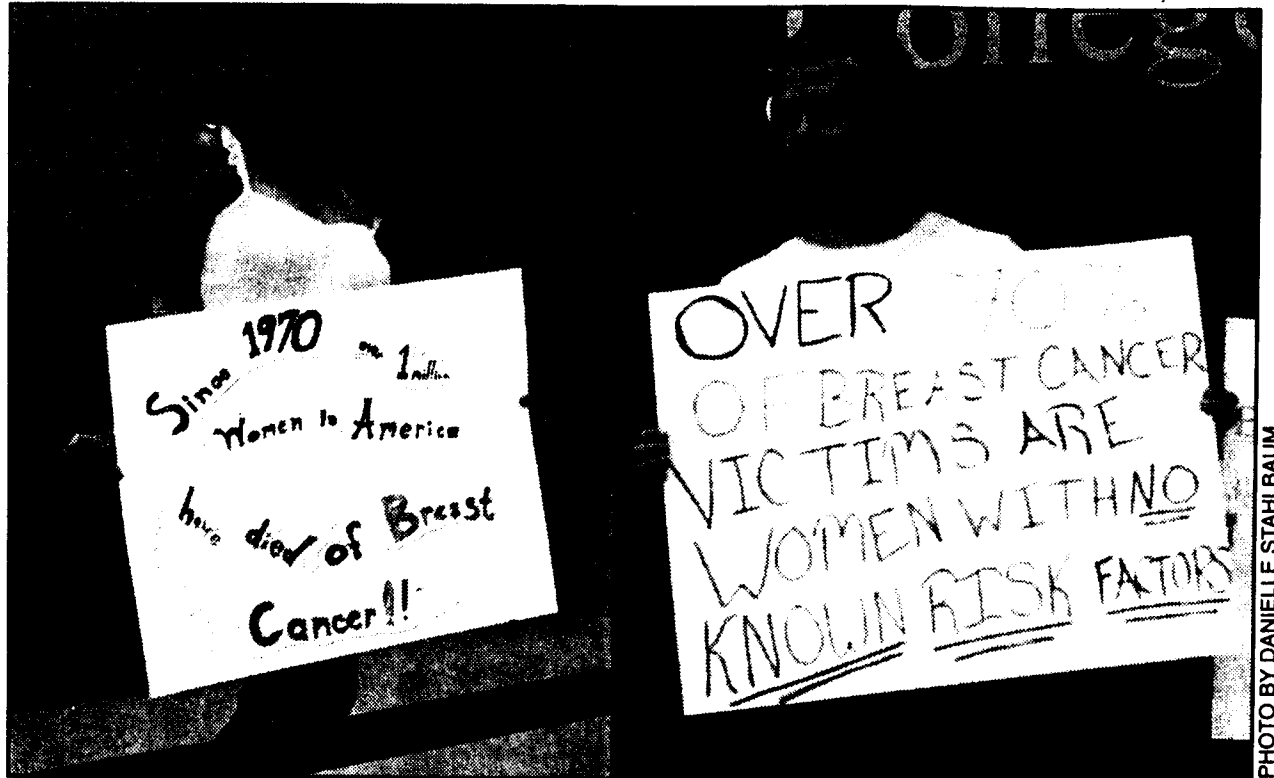 Since 1970 1 million
Women in America
have died of Breast
Cancer!!
OVER 70%
OF BREAST CANCER
VICTIMS ARE
WOMEN WITH NO
KNOWN RISK FACTORS
PHOTO BY DANIELLE STAHLBAUM